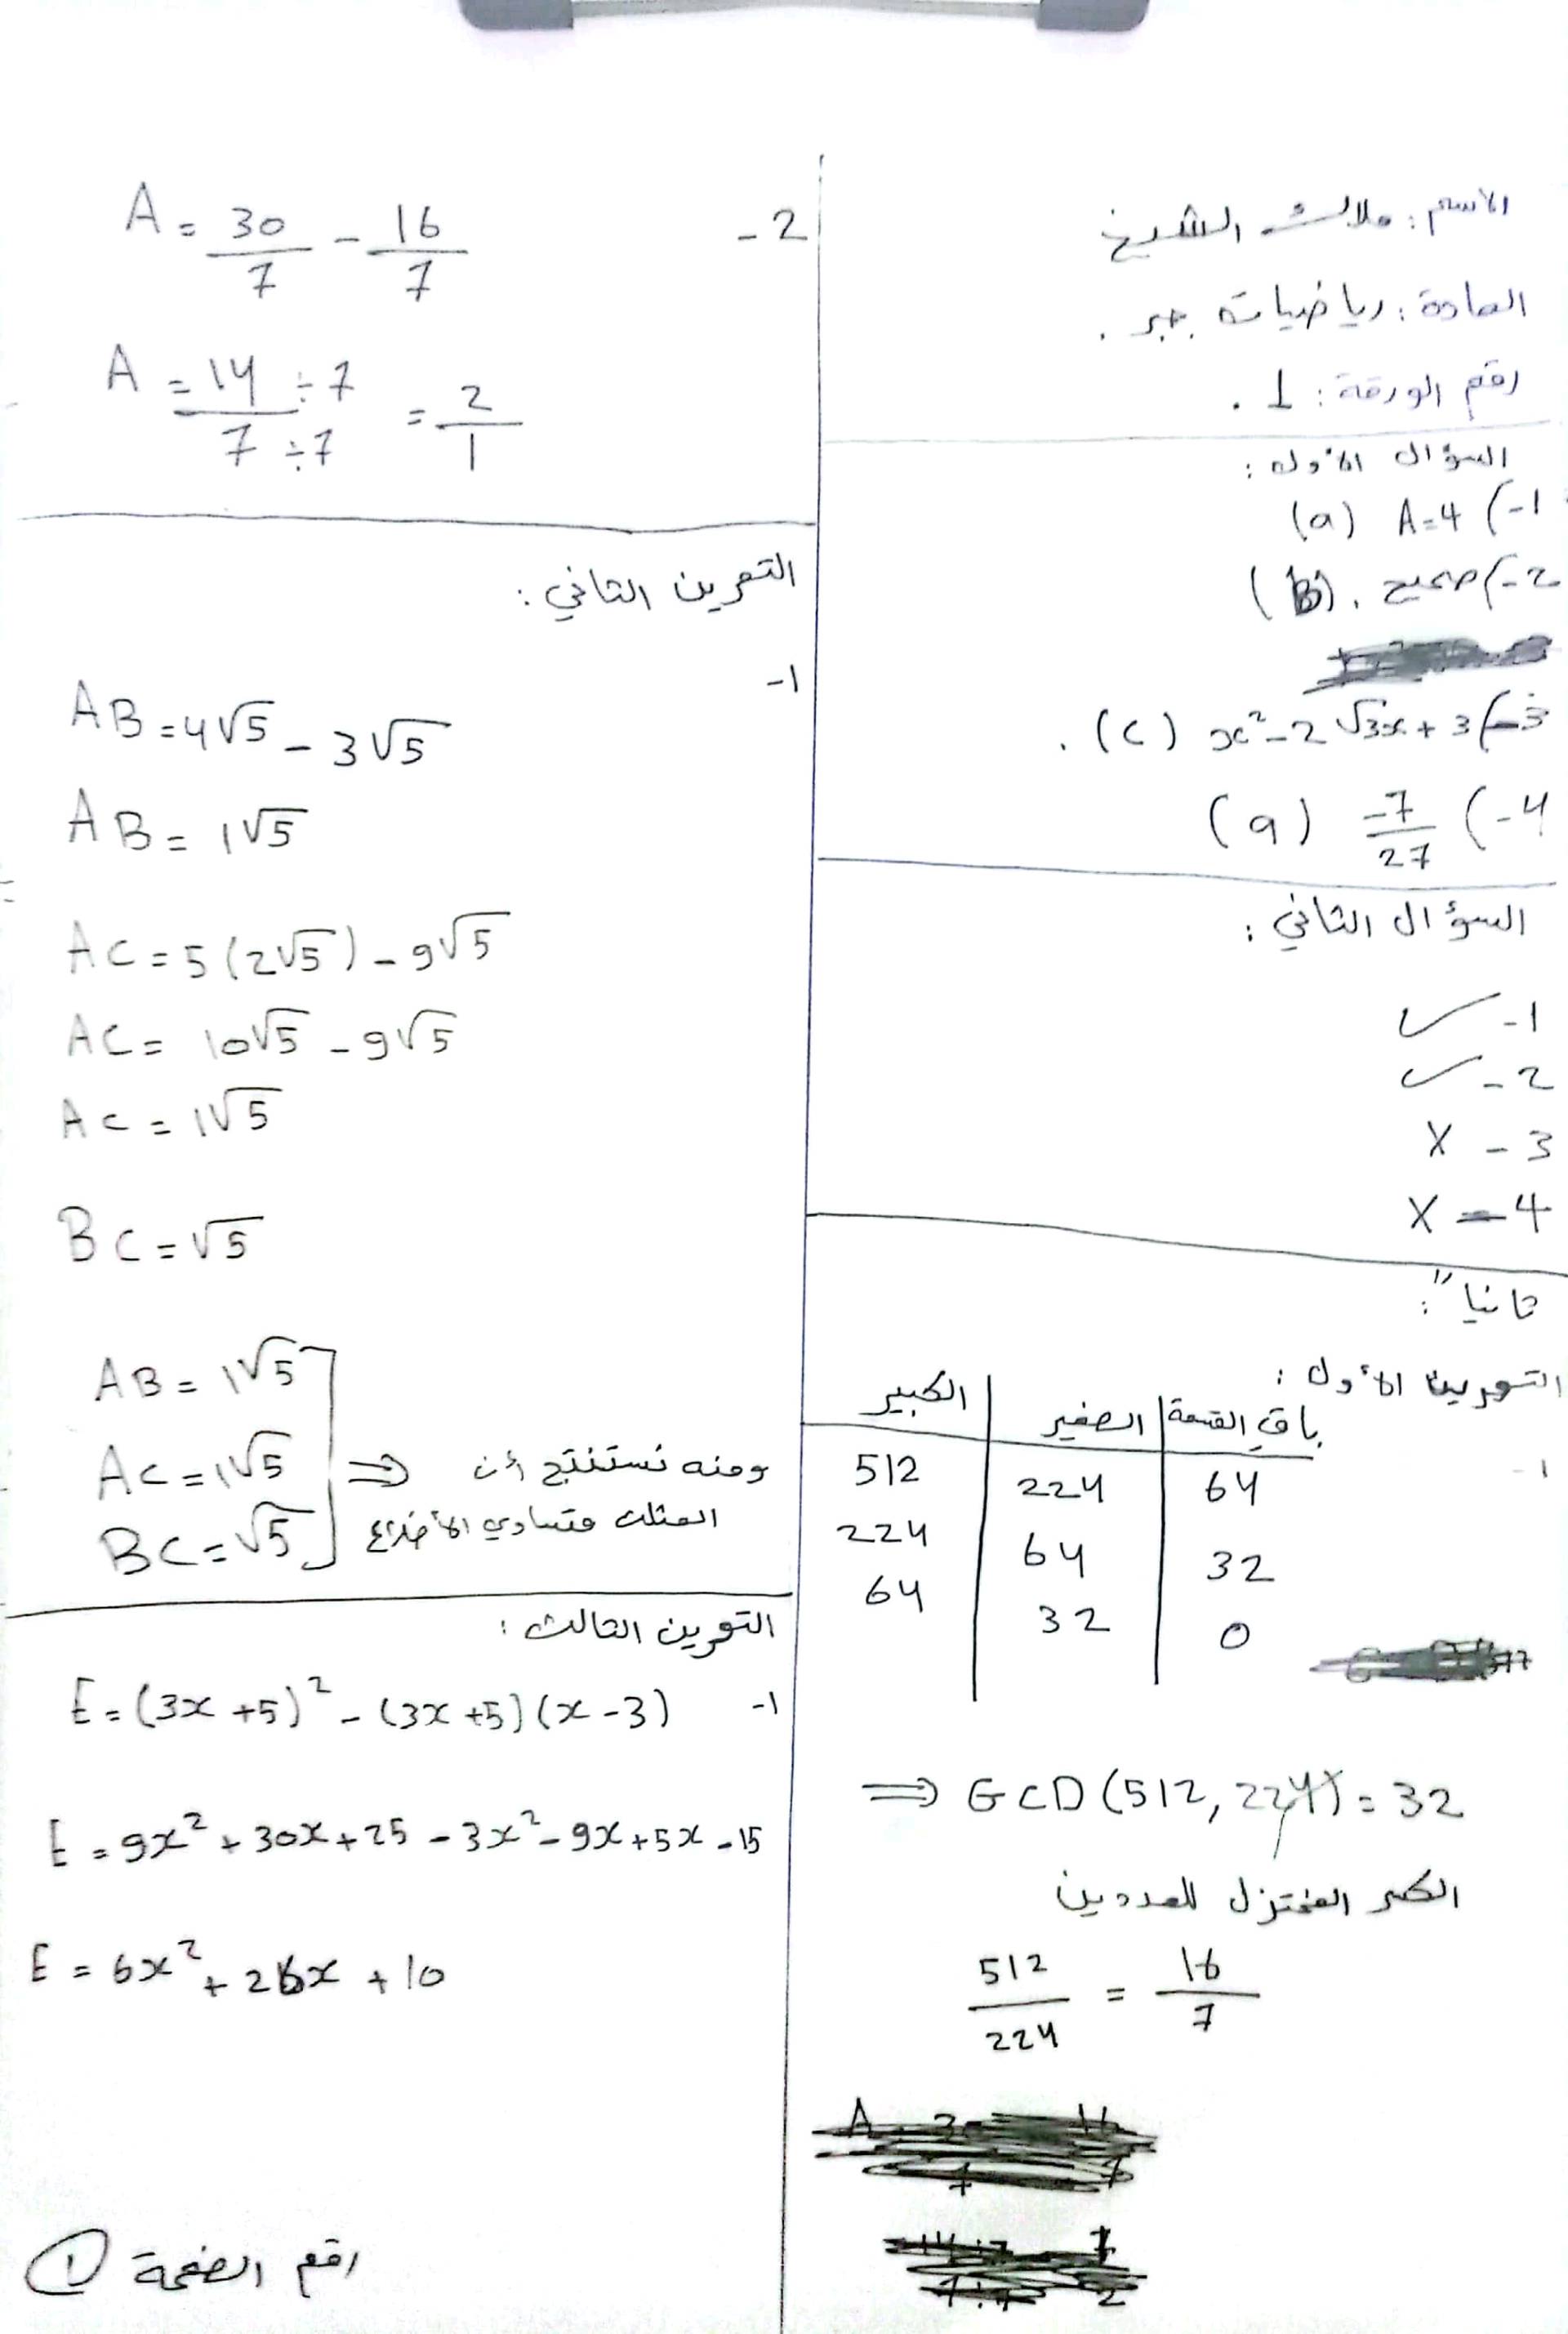 الاسم : ملاك الشيخ
المادة : رياضيات جبر .
رقم الورقة : 1 .
السؤال الأول :
1- ) A=4 (a)
2- ) صحيح . (B)
3- ) x²-2√3x+3 (c) .
4- ) -7/27 (a)
السؤال الثاني :
1- ✓
2- ✓
3 - X
4 - X
ثانياً :
التمرين الأول :
1-
الكبير | الصغير | باقي القسمة
512 | 224 | 64
224 | 64 | 32
64 | 32 | 0
⇒ GCD (512, 224) = 32
الكسر المختزل للعددين
512/224 = 16/7
2-
A = 30/7 - 16/7
A = 14÷7/7÷7 = 2/1
التمرين الثاني :
1-
AB = 4√5 - 3√5
AB = 1√5
AC = 5(2√5) - 9√5
AC = 10√5 - 9√5
AC = 1√5
BC = √5
AB = 1√5
AC = 1√5 ⇒ ومنه نستنتج أن
BC = √5 المثلث متساوي الأضلاع
التمرين الثالث :
1- E = (3x+5)² - (3x+5)(x-3)
E = 9x² + 30x + 25 - 3x² - 9x + 5x - 15
E = 6x² + 26x + 10
رقم الصفحة 1